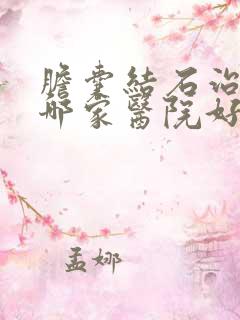 膽囊結石治
哪家醫院好
孟娜